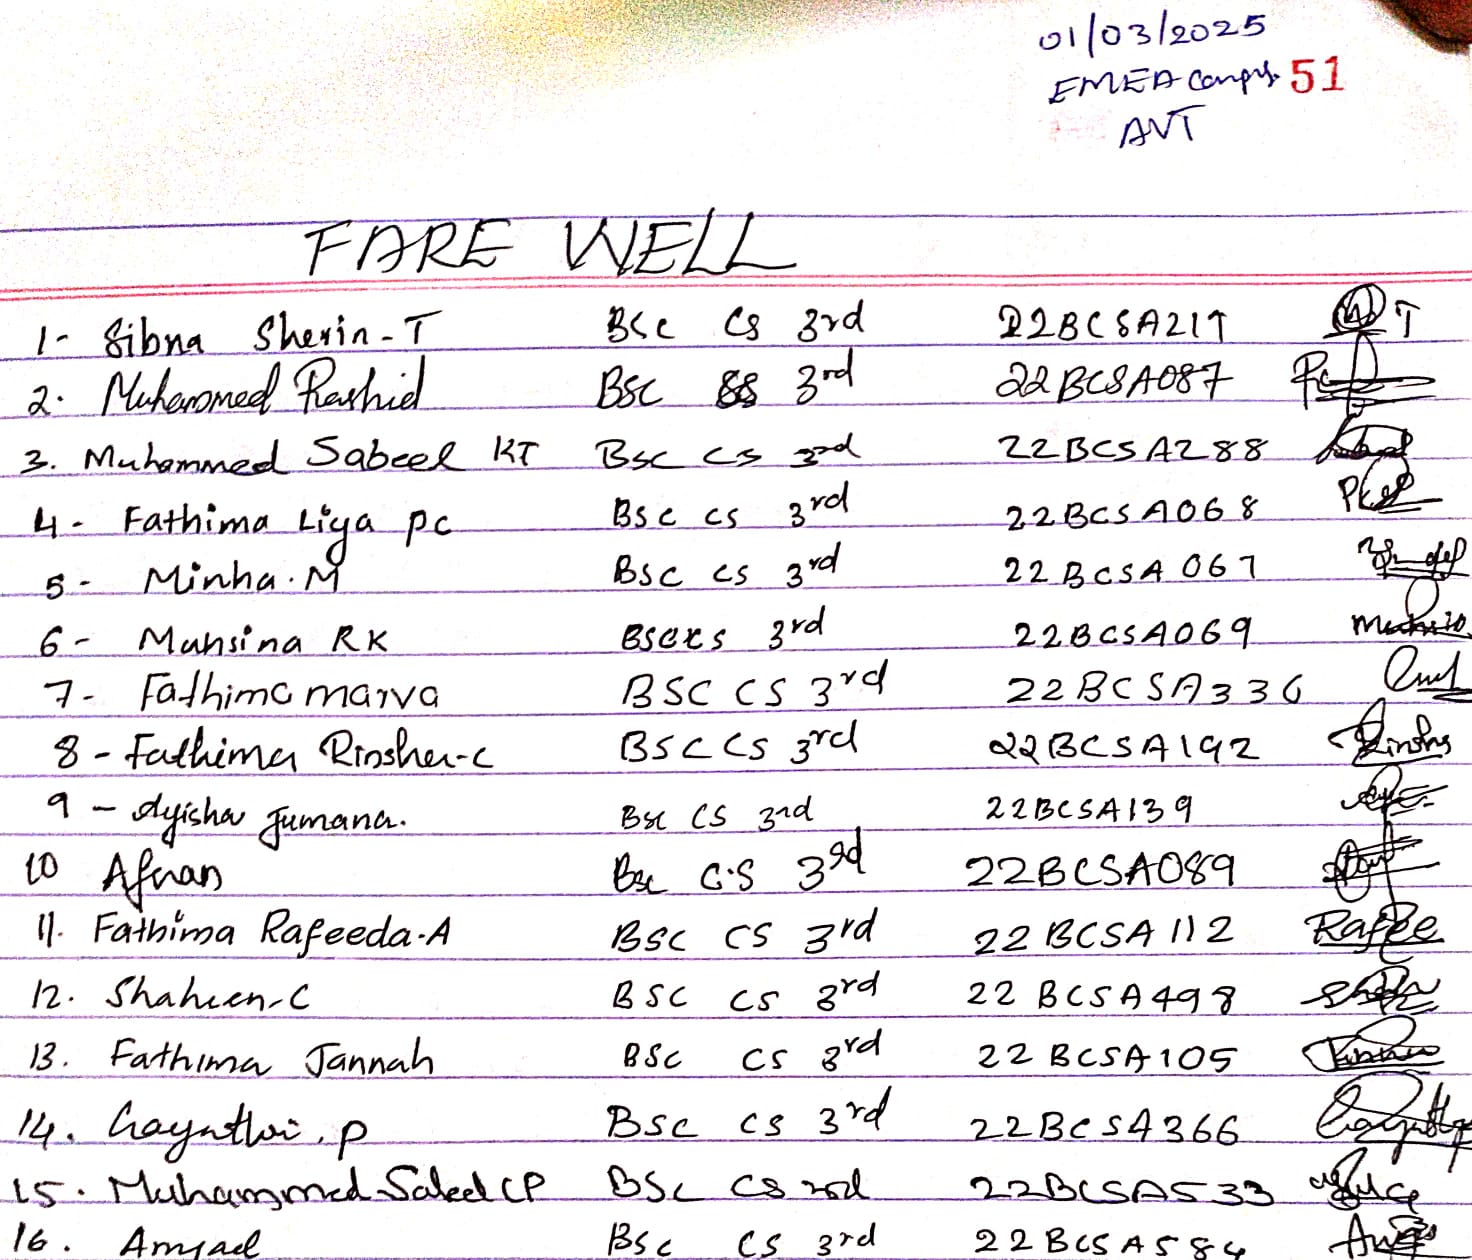 01/03/2025
EMEA Campus 51
AVT
FARE WELL
1- Sibna Sherin-T BSc CS 3rd 22BCSA217 T
2. Muhammed Rashid BSc CS 3rd 22BCSA087
3. Muhammed Sabeel KT BSc CS 3rd 22BCSA288
4- Fathima Liya PC BSc CS 3rd 22BCSA068
5- Minha.M BSc CS 3rd 22BCSA067
6- Muhsina RK BSc CS 3rd 22BCSA069
7- Fathima marva BSC CS 3rd 22BCSA336
8- Fathima Rinsha-C BSC CS 3rd 22BCSA192
9- Ayisha Jumana. BSc CS 3rd 22BCSA139
10 Afnan BSc C.S 3rd 22BCSA089
11. Fathima Rafeeda.A BSC CS 3rd 22BCSA112 Rafee
12. Shaheen-C BSC CS 3rd 22BCSA498
13. Fathima Jannah BSC CS 3rd 22BCSA105
14. Gayathri.p BSc CS 3rd 22BCSA366
15. Muhammed Saleel CP BSc CS 3rd 22BCSA533
16. Amjad BSc CS 3rd 22BCSA584